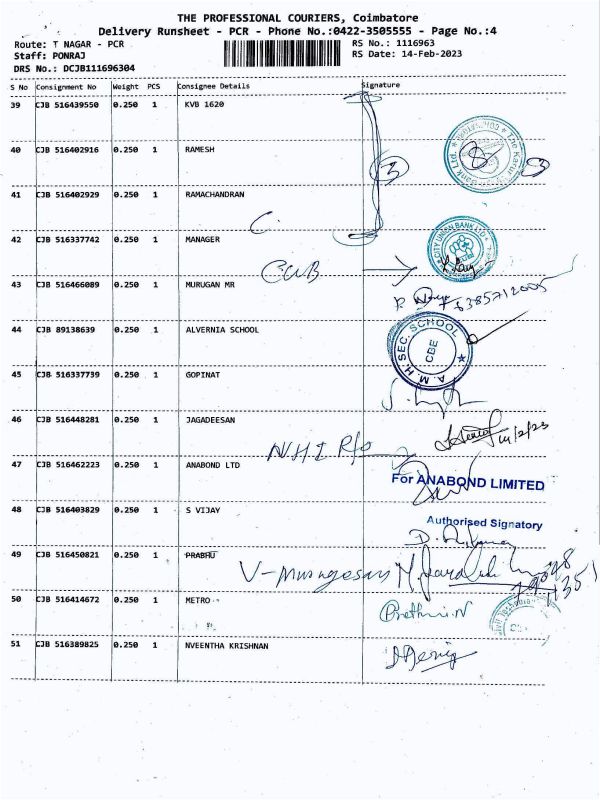 THE PROFESSIONAL COURIERS, Coimbatore
Delivery Runsheet - PCR - Phone No.:0422-3505555 - Page No.:4
Route: T NAGAR - PCR
RS No.: 1116963
Staff: PONRAJ
RS Date: 14-Feb-2023
DRS No.: DCJB111696304
S No Consignment No Weight PCS Consignee Details Signature
39 CJB 516439550 0.250 1 KVB 1620
40 CJB 516402916 0.250 1 RAMESH
3 8 3
41 CJB 516402929 0.250 1 RAMACHANDRAN
C.
42 CJB 516337742 0.250 1 MANAGER
CITY UNION BANK LTD
CUB
43 CJB 516466089 0.250 1 MURUGAN MR
6385712005
44 CJB 89138639 0.250 1 ALVERNIA SCHOOL
A. M. H. SEC. SCHOOL
CBE
45 CJB 516337739 0.250 1 GOPINAT
46 CJB 516448281 0.250 1 JAGADEESAN
14/2/23
NHI
47 CJB 516462223 0.250 1 ANABOND LTD
For ANABOND LIMITED
48 CJB 516403829 0.250 1 S VIJAY
Authorised Signatory
49 CJB 516450821 0.250 1 PRABHU
V-Murugesan
50 CJB 516414672 0.250 1 METRO
Prethi.N
51 CJB 516389825 0.250 1 NVEENTHA KRISHNAN